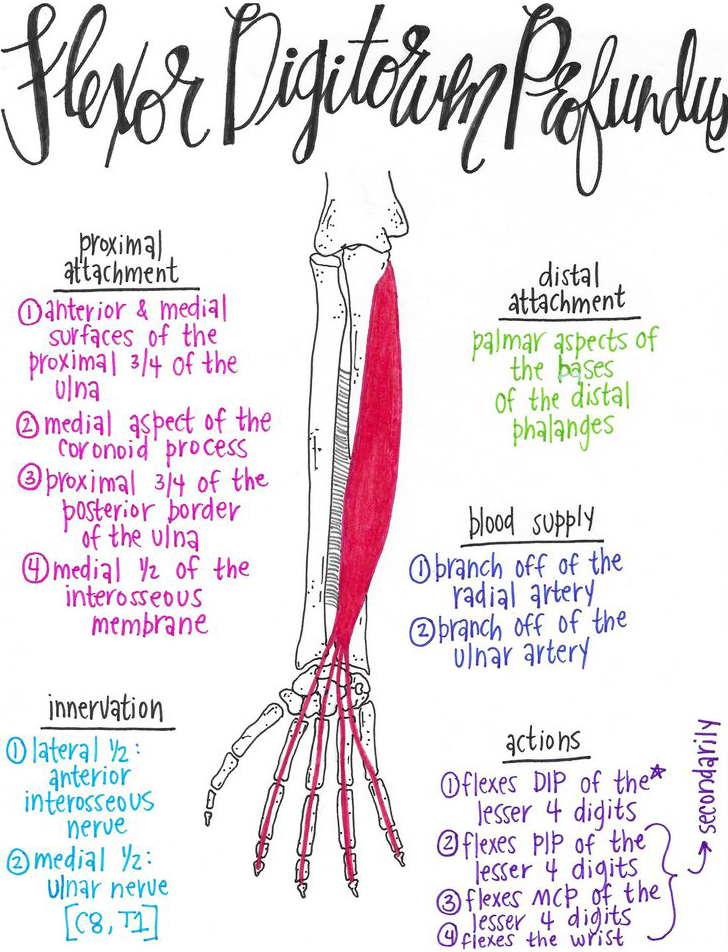 Flexor Digitorum Profundus
proximal
attachment
① anterior & medial
surfaces of the
proximal 3/4 of the
ulna
② medial aspect of the
coronoid process
③ proximal 3/4 of the
posterior border
of the ulna
④ medial 1/2 of the
interosseous
membrane
innervation
① lateral 1/2:
anterior
interosseous
nerve
② medial 1/2:
ulnar nerve
[C8, T1]
distal
attachment
palmar aspects of
the bases
of the distal
phalanges
blood supply
① branch off of the
radial artery
② branch off of the
ulnar artery
actions
① flexes DIP of the*
lesser 4 digits
② flexes PIP of the
lesser 4 digits
③ flexes MCP of the
lesser 4 digits
④ flexes the wrist
→ secondarily